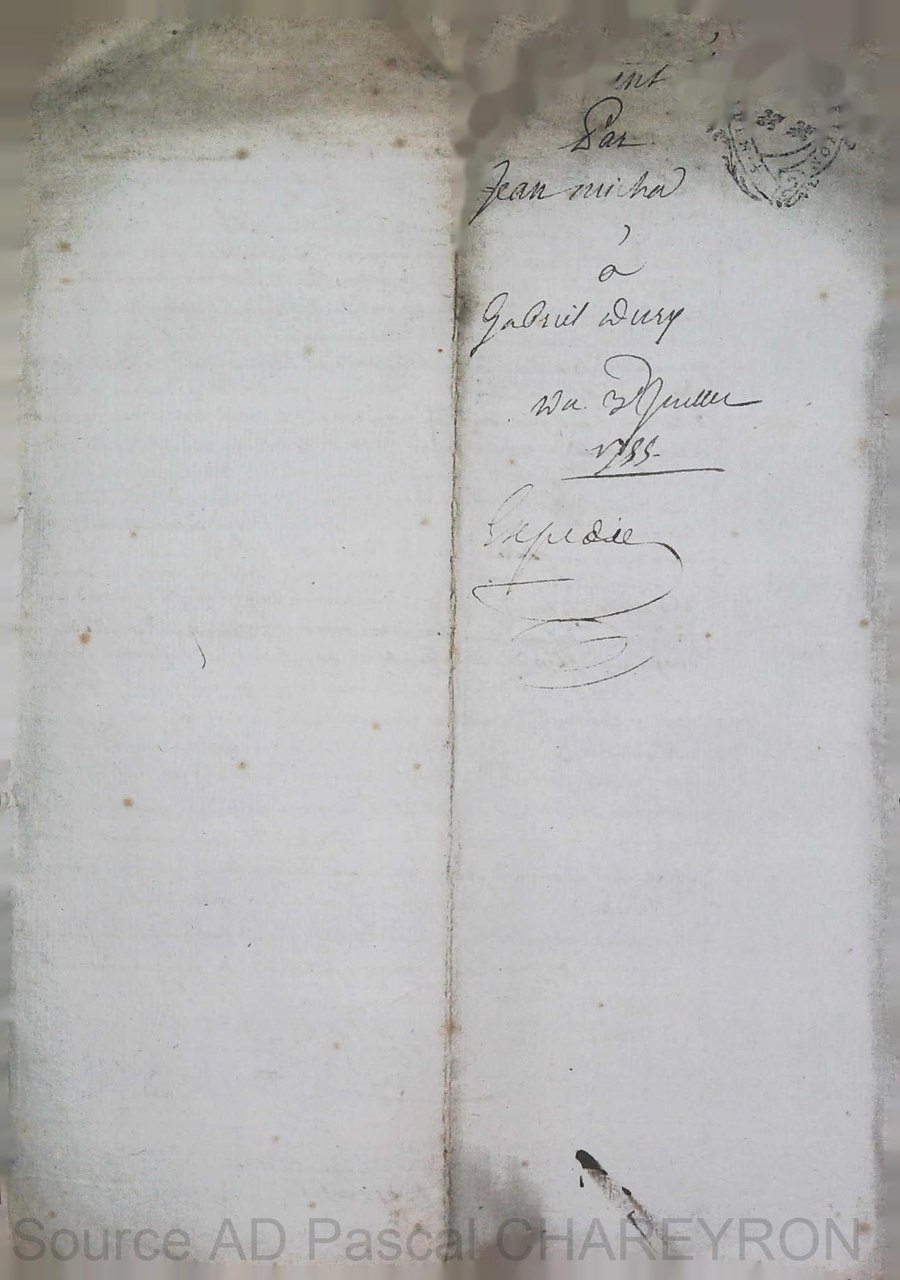 Par
Jean michad
à
Gabriel dury
du 3e Juillet
1755
Expedie
Source AD Pascal CHAREYRON